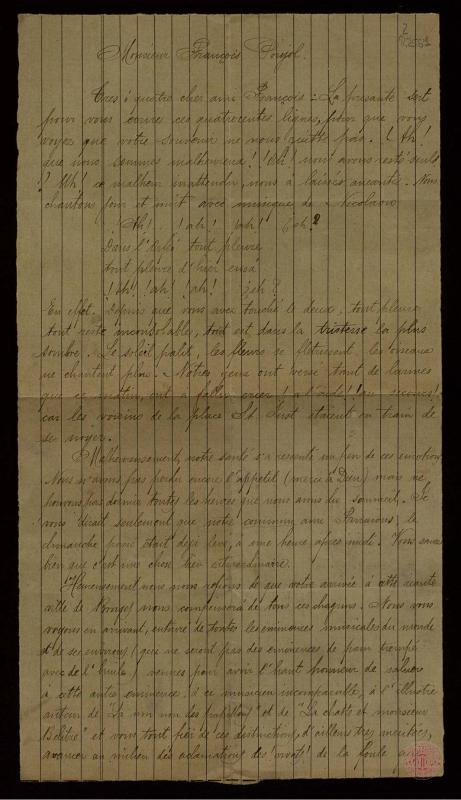 Monsieur François Pujol.
Tres i quatre cher ami François = La presante sert
pour vous ecrire ces quatrecentes lignes, pour que vous
voyez que votre souvenir ne nous quitte pas. ¡Ah!
que nous sommes malheureux!! ¡Oh! nous avons resté seuls
!! Uh! ce malheur inattendu, nous a laissés aneantis. Nous
chantons jour et nuit avec musique de Nicolavu
¡Ah!.. ¡ah! ¡ah! ¿oh?
Dans l' tout pleure,
tout pleure d'hier ensá
¡ah! ¡ah! ¡ah! ¿eh?
En effet. Depuis que vous avez touché le deux, tout pleure,
tout reste inconsolable, tout est dans la tristesse la plus
sombre. Le soleil palit, les fleurs se fletrissent, les oiseaux
ne chantent plus. Nôtres yeux ont versé tant de larmes
que ce matin, ont a fallu crier ¡a l'aide! ¡au secours!
car les voisins de la place St. Just etaient en train de
se noyer.
Malheureusement, notre santé s'a resenti un peu de ces emotions.
Nous n'avons pas perdu encore l'appetit (merci à Dieu) mais ne
pouvons pas dormir toutes les heures que nous avons du sommeil. Je
vous dirait seulement que notre commun ami, le
dimanche passé etait dejà levé, à une heure apres midi. Vous savez
bien que c'est une chose bien extraordinaire.
Heureusement nous nous rejouons de que votre arrivée à cette
ville de nous compensera de tous ces chagrins. Nous vous
voyons en arrivant, entouré de toutes les eminences musicales du monde
et de ses environs (que ne seront pas des eminences de pain trempé
avec de l'huile) venues pour avoir l'haut honneur de saluer
à cette autre eminence, à ce musicien incomparable, à l'illustre
auteur de "La non non des papillons" et de "La chatte et monsieur
Belitre" et vous tout fier de ces distinctions, d'ailleurs tres meritées,
avancer au milieu des aclamations des ¡vivats! de la foule